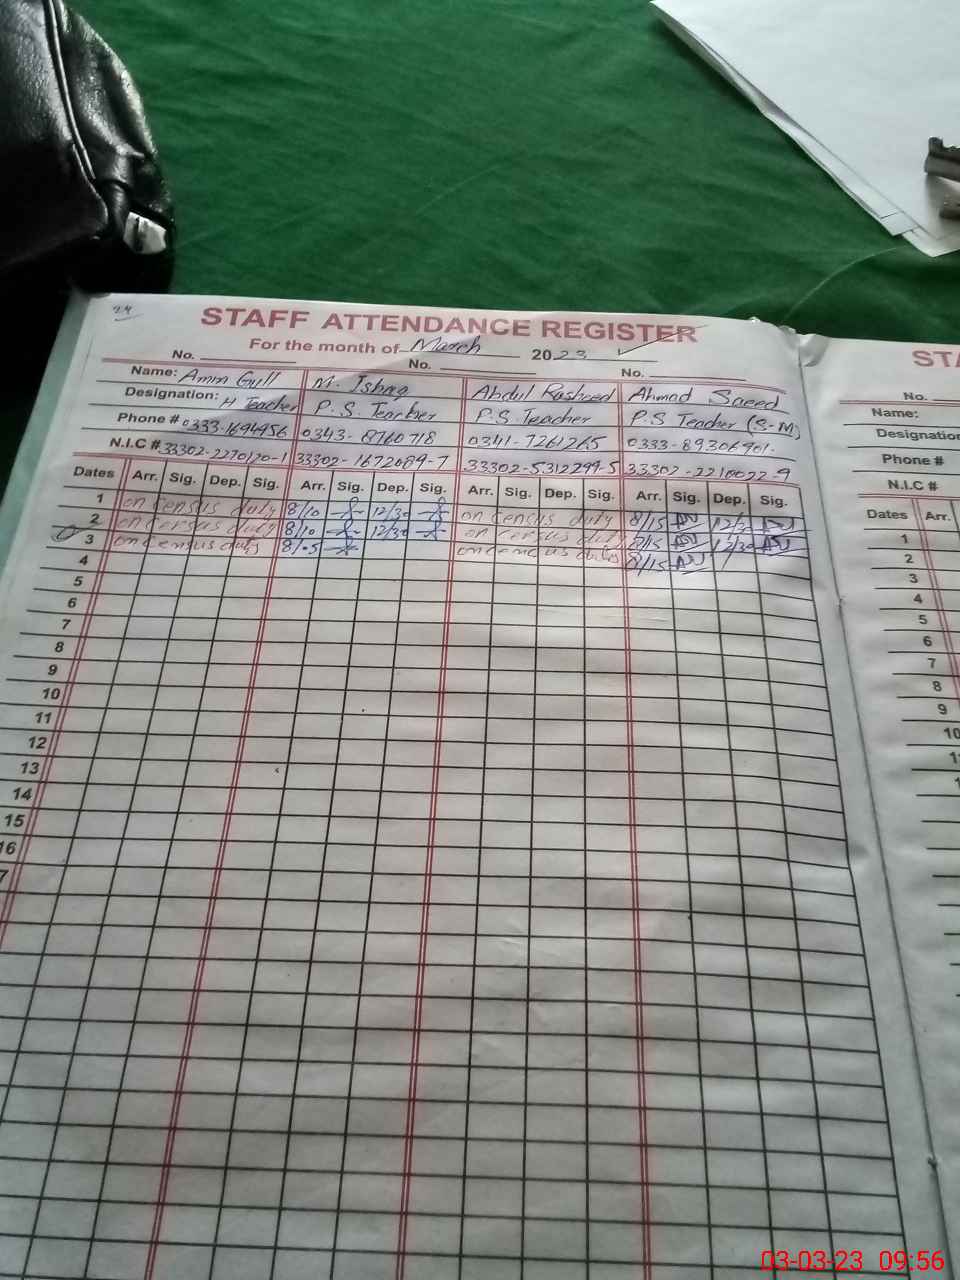 24
STAFF ATTENDANCE REGISTER
For the month of March 2023
No. No. No.
Name: Amin Gull M. Ishaq Abdul Rasheed Ahmad Saeed
Designation: H Teacher P.S. Teacher P.S Teacher P.S Teacher (S-M)
Phone # 0333-1694956 0343-8760718 0341-7261265 0333-89306901-
N.I.C # 33302-2270120-1 33302-1672089-7 33302-5312299-5 33302-2210022-9
Dates Arr. Sig. Dep. Sig. Arr. Sig. Dep. Sig. Arr. Sig. Dep. Sig. Arr. Sig. Dep. Sig.
1 on census duty 8/10 12/30 on census duty 8/15 12/30
2 on census duty 8/10 12/30 on census duty 8/15 12/30
3 on census duty 8/05 on census duty 8/15
4
5
6
7
8
9
10
11
12
13
14
15
16
7
STA
No.
Name:
Designation
Phone #
N.I.C #
Dates Arr.
1
2
3
4
5
6
7
8
9
10
03-03-23 09:56